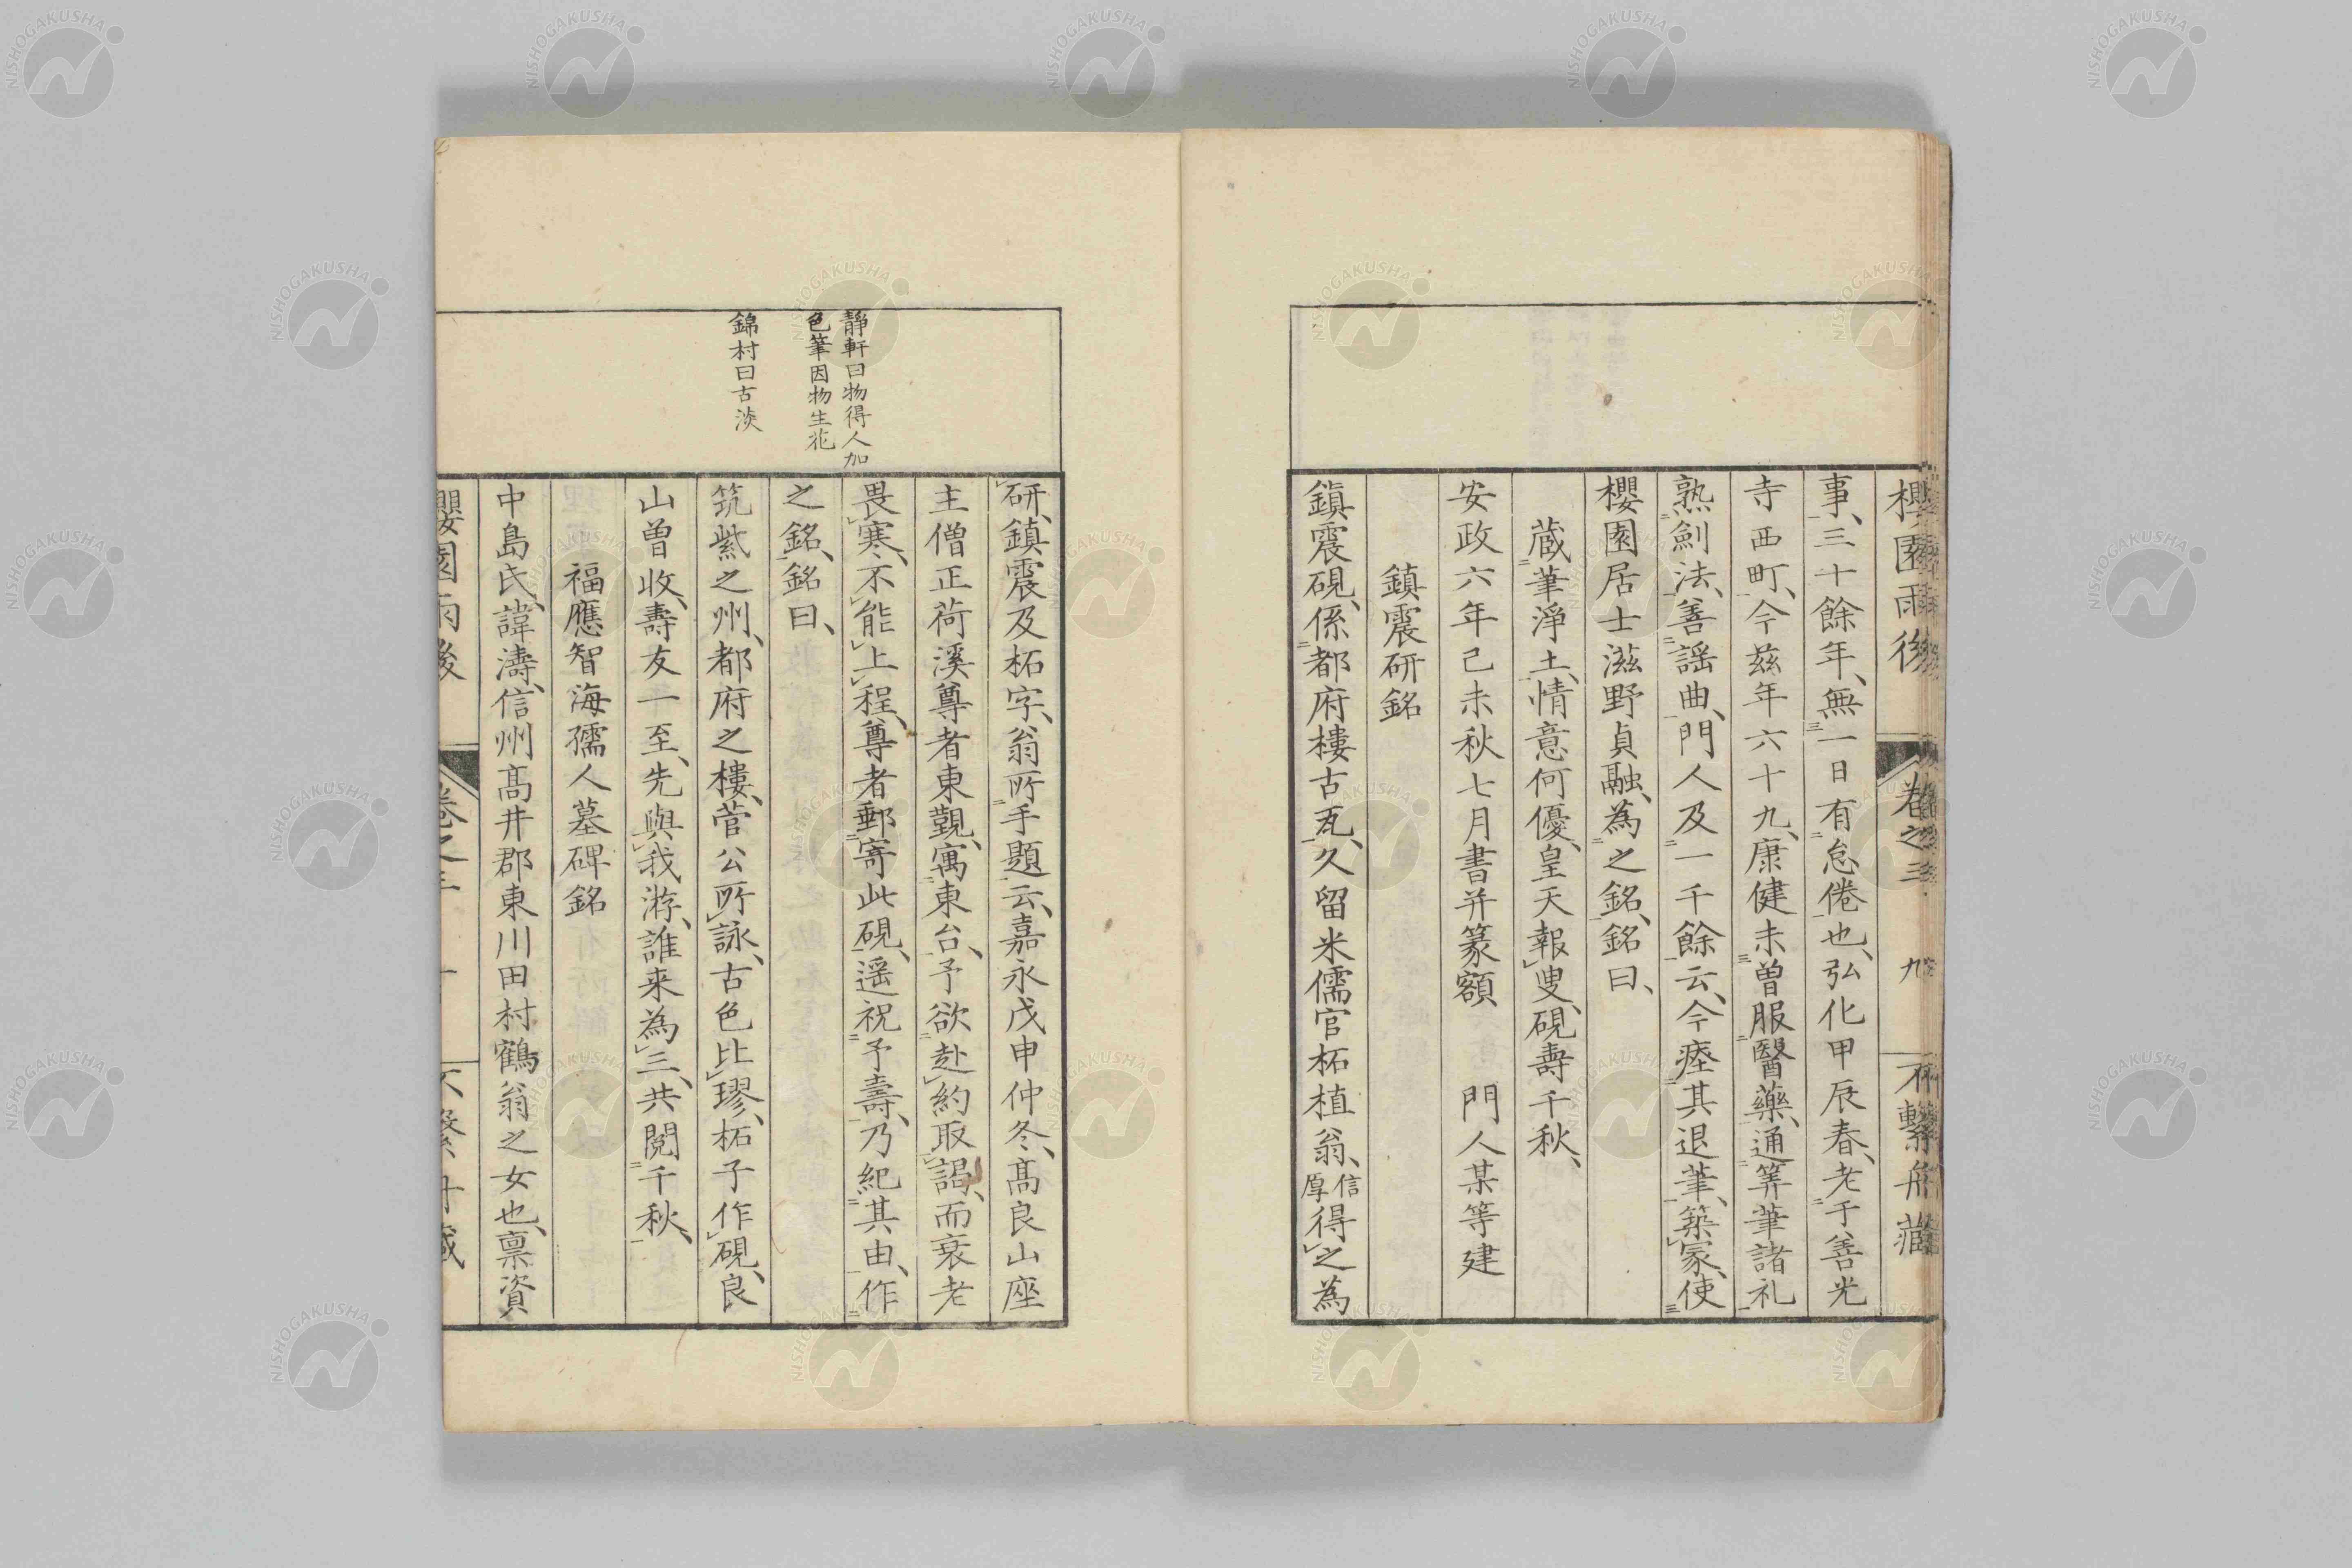 櫻園雨後 卷之三 九 不繫舟藏
事、三十餘年、無一日有怠倦也、弘化甲辰春、老于善光
寺西町、今茲年六十九、康健未曾服醫藥、通筭筆諸礼
熟劍法、善謡曲、門人及一千餘云、今瘞其退筆、築冢、使
櫻園居士滋野貞融、為之銘、銘曰、
蔵筆淨土、情意何優、皇天報叟、硯壽千秋、
安政六年己未秋七月書并篆額 門人某等建
鎮震研銘
鎮震硯、係都府樓古瓦、久留米儒官柘植翁、信厚得之為
研、鎮震及柘字、翁所手題云、嘉永戊申仲冬、髙良山座
主僧正荷溪尊者東觀、寓東台、予欲赴約取謁、而衰老
畏寒、不能上程、尊者郵寄此硯、遥祝予壽、乃紀其由、作
之銘、銘曰、
筑紫之州、都府之樓、菅公所詠、古色比璆、柘子作硯、良
山曽收、壽友一至、先與我游、誰来為三、共閲千秋、
福應智海孺人墓碑銘
中島氏、諱濤、信州髙井郡東川田村鶴翁之女也、禀資
静軒曰物得人加
色筆因物生花
錦村曰古淡
櫻園雨後 卷之三 十 不繫舟藏